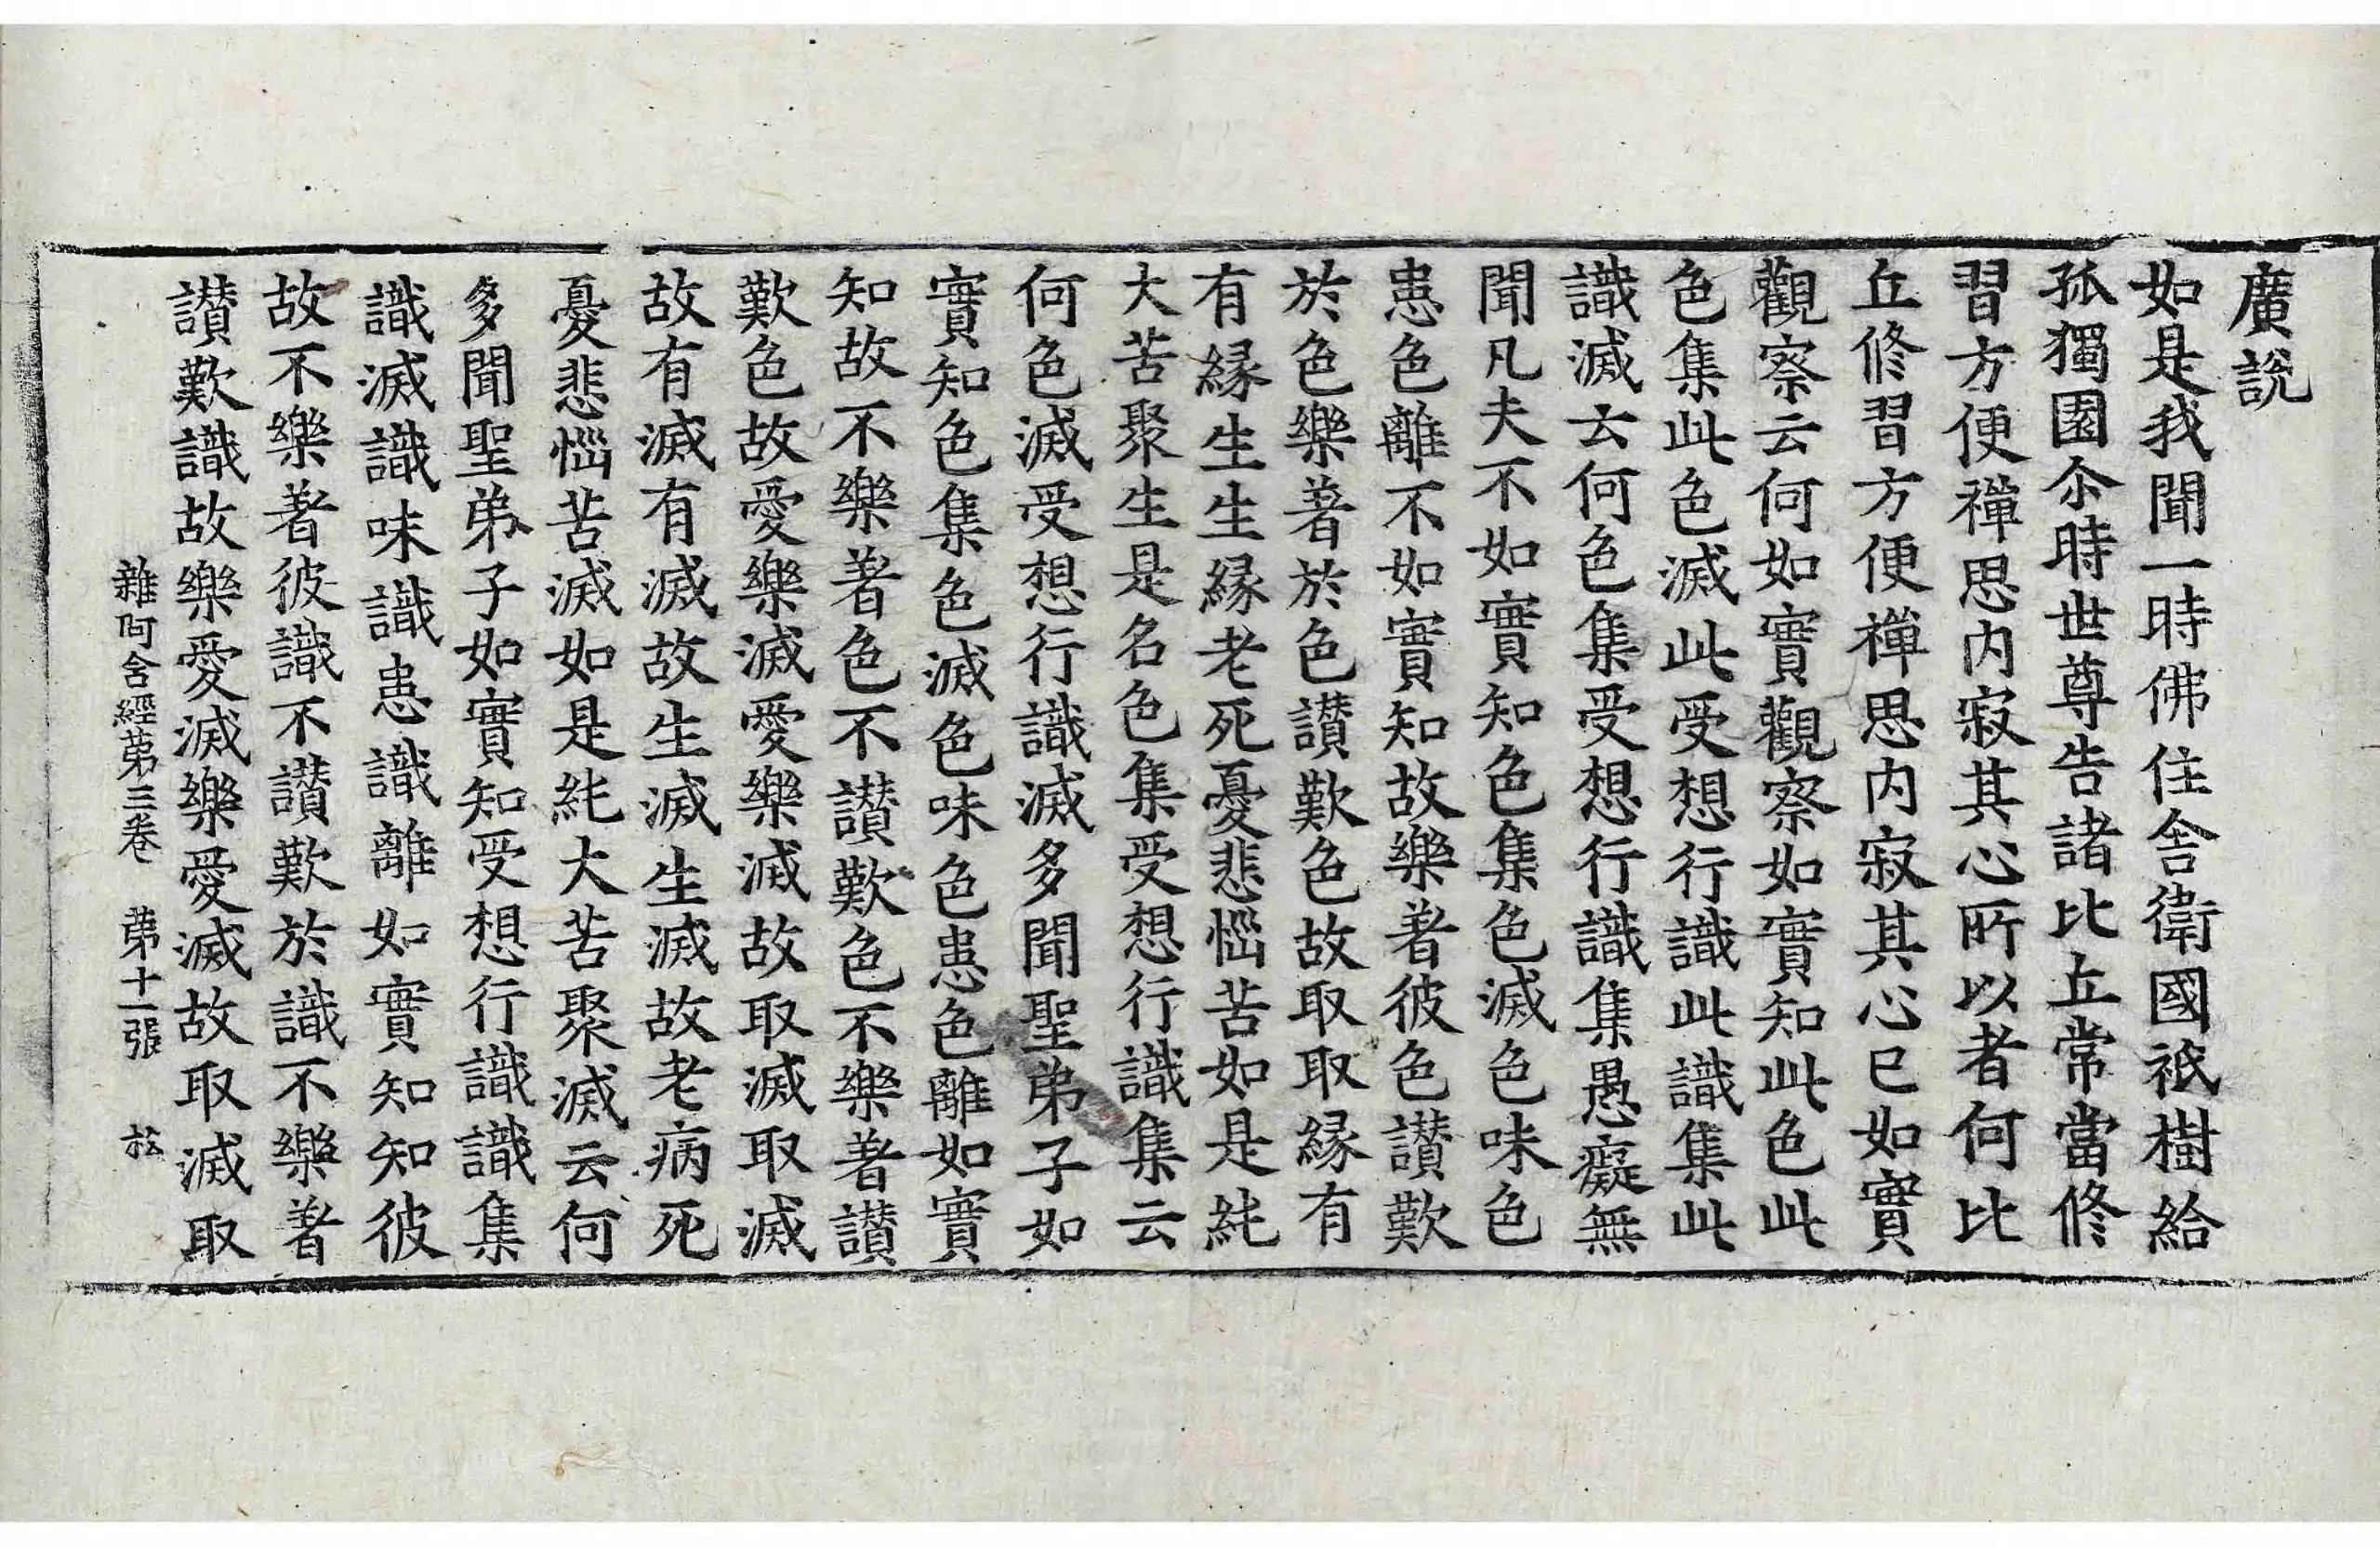 廣說
如是我聞一時佛住舍衛國祇樹給
孤獨園尒時世尊告諸比丘常當修
習方便禪思内寂其心所以者何比
丘修習方便禪思内寂其心已如實
觀察云何如實觀察如實知此色此
色集此色滅此受想行識此識集此
識滅云何色集受想行識集愚癡無
聞凡夫不如實知色集色滅色味色
患色離不如實知故樂著彼色讃歎
於色樂著於色讃歎色故取取緣有
有緣生生緣老死憂悲惱苦如是純
大苦聚生是名色集受想行識集云
何色滅受想行識滅多聞聖弟子如
實知色集色滅色味色患色離如實
知故不樂著色不讃歎色不樂著讃
歎色故愛樂滅愛樂滅故取滅取滅
故有滅有滅故生滅生滅故老病死
憂悲惱苦滅如是純大苦聚滅云何
多聞聖弟子如實知受想行識識集
識滅識味識患識離如實知知彼
故不樂著彼識不讃歎於識不樂著
讃歎識故樂愛滅樂愛滅故取滅取
雜阿含經第三卷　第十一張　松